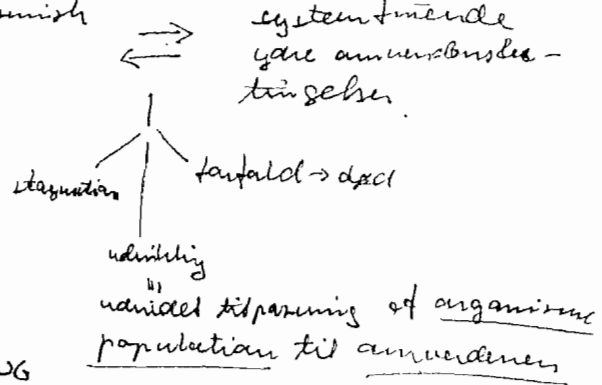 system
ydre
tingelser.
stagnation forfald → død
udvikling
"
udvidet tilpasning af organisme
population til omverdenen